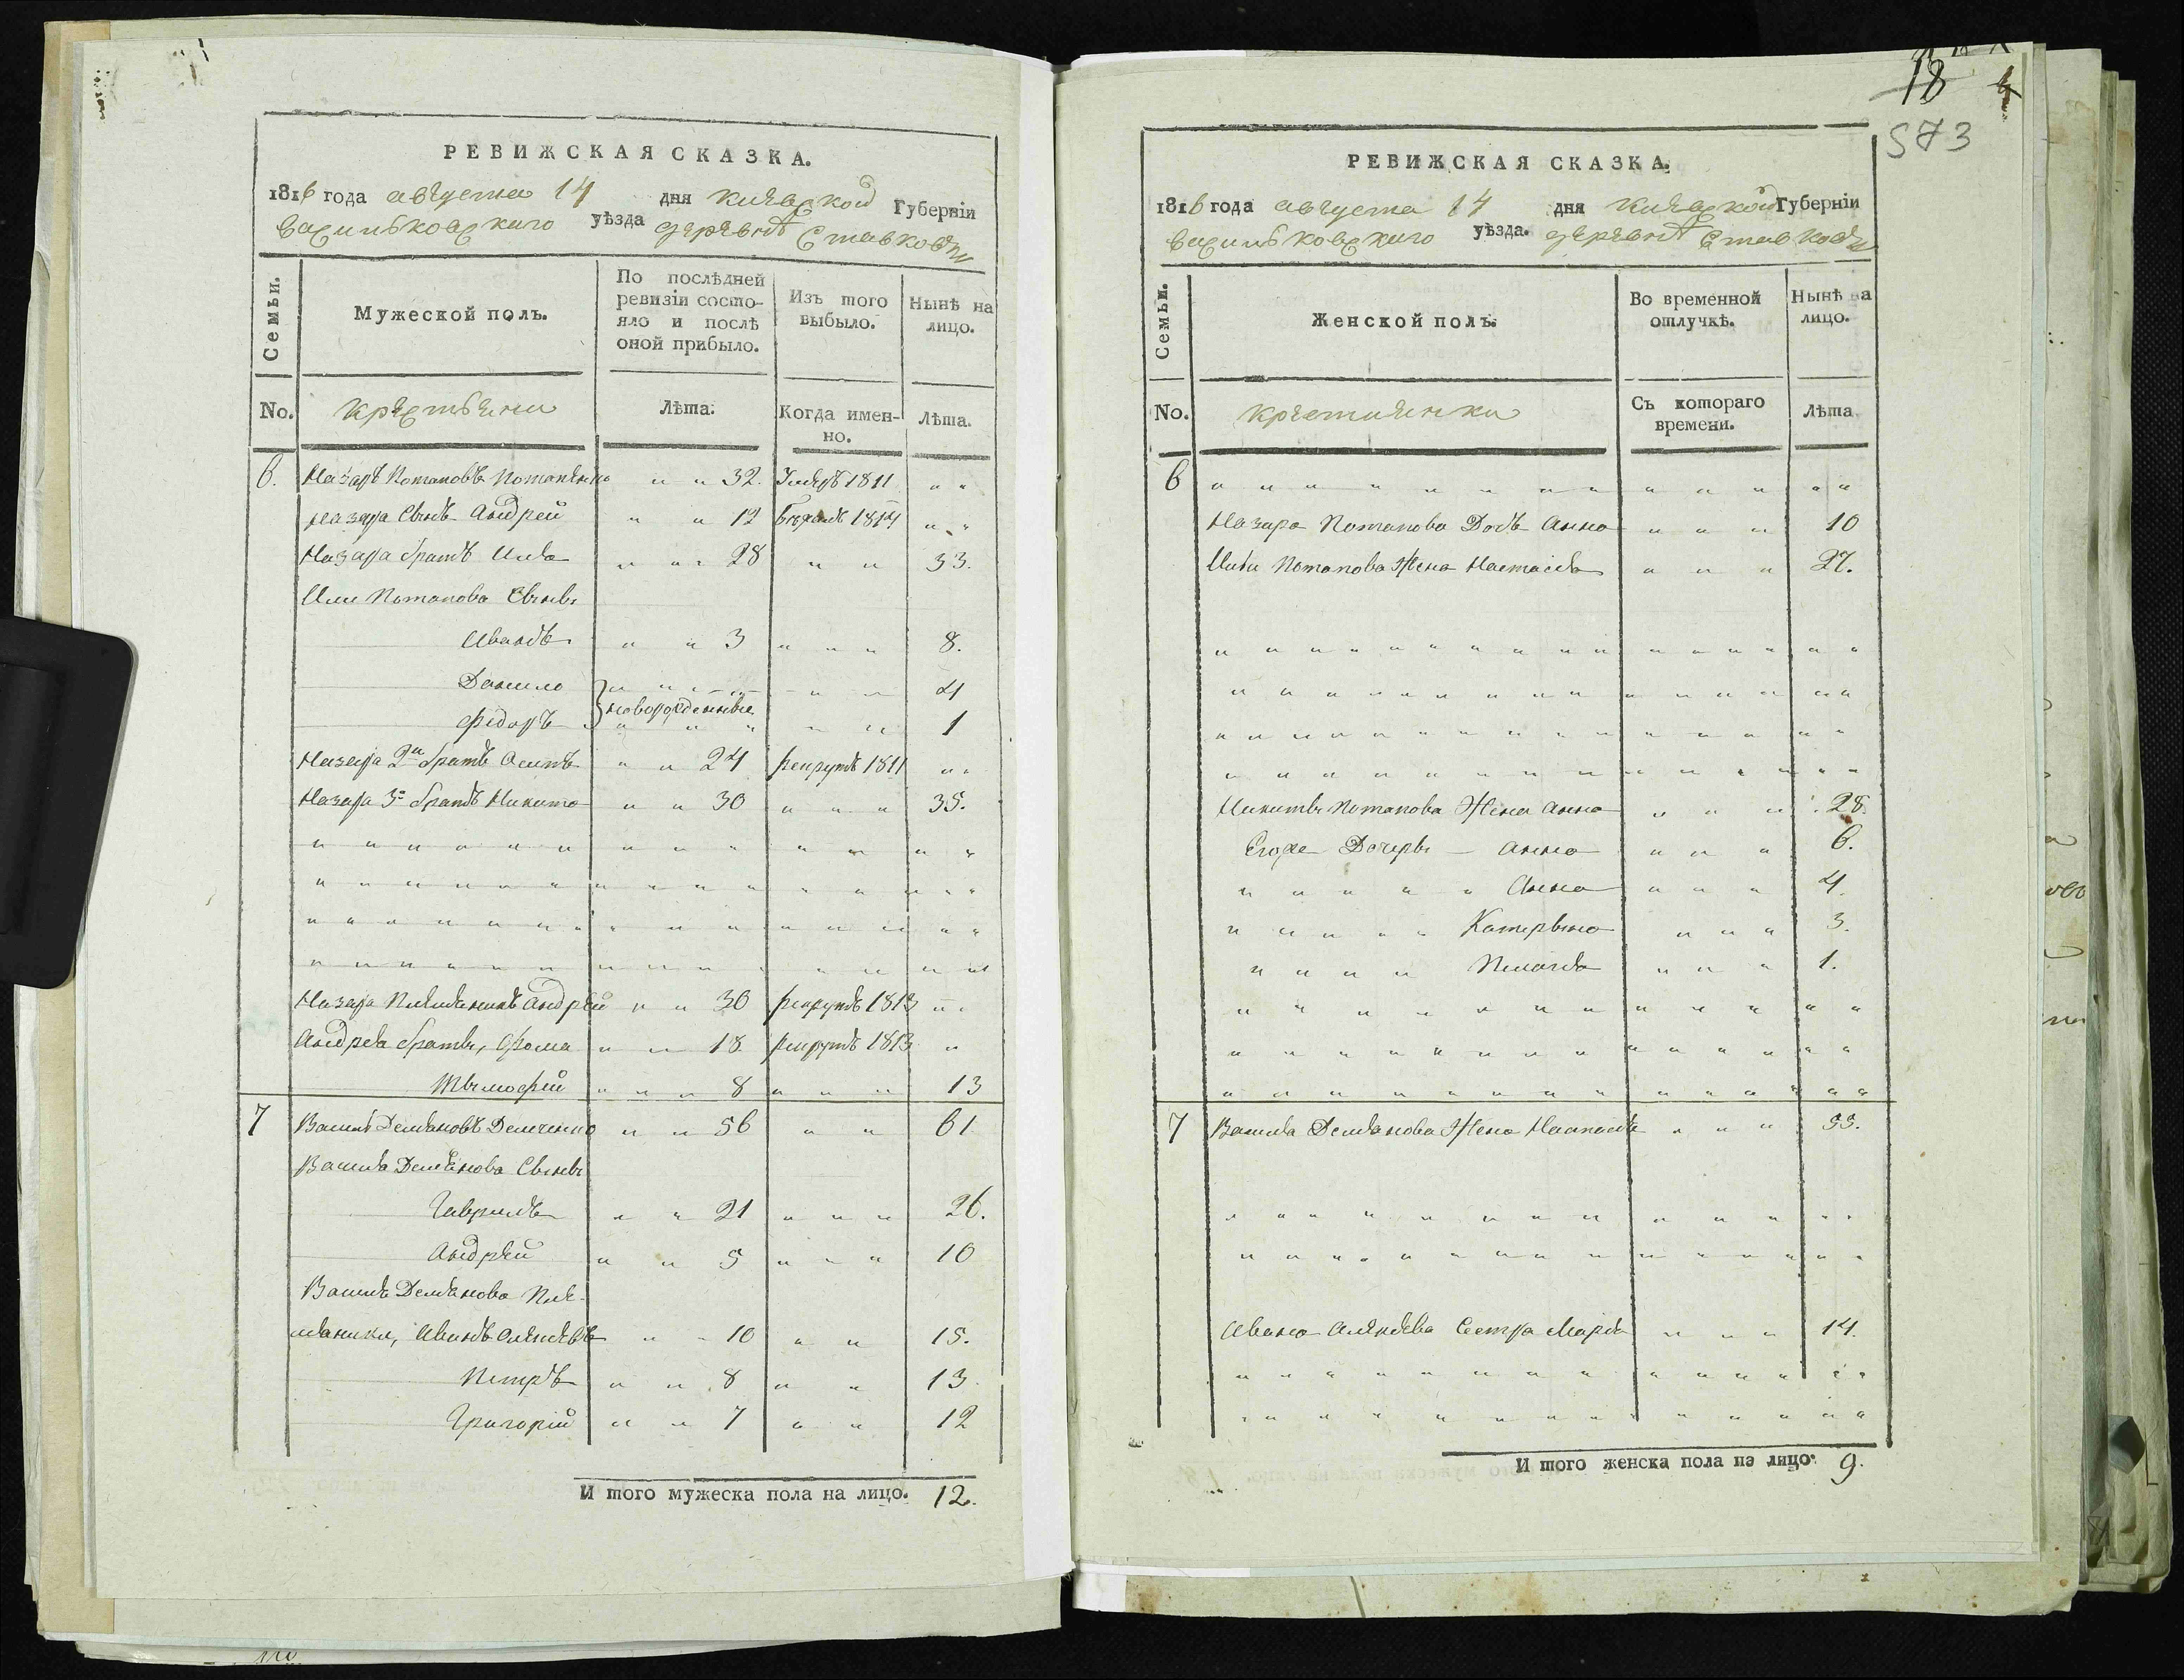 РЕВИЖСКАЯ СКАЗКА.
1816 года августа 14 дня киевской Губерніи
васильковского уѣзда деревнѣ Ставковъ
Семьи. Мужеской полъ. По послѣдней ревизіи состояло и послѣ оной прибыло. Изъ того выбыло. Нынѣ на лицо.
No. крестьяни Лѣта. Когда именно. Лѣта.
6. Назаръ Потаповъ Потапенко " " 32. Умеръ 1811 " "
Назара Сынъ Андрей " " 12 Бежалъ 1814 " "
Назара братъ Илья " " 28 " " 33.
Или Потапова Сыны
Иванъ " " 3 " " " 8.
Данило " " " " " 4
новорожденные
Федоръ " " " " " 1
Назара 2й братъ Осипъ " " 24 рекрутъ 1811 " "
Назара 3й братъ Никита " " 30 " " " 35.
Назара Племянникъ Андрей " " 30 рекрутъ 1813 " "
Андрея братъ, Фома " " 18 рекрутъ 1813 "
Тымофей " " " 8 " " " 13
7 Василь Демьяновъ Демченко " " 56 " " 61
Василя Демьянова Сыны
Гаврилъ " " 21 " " " 26.
Андрей " " 5 " " " 10
Василя Демьянова Пле-
мяники, Иванъ Алексеевъ " " 10 " " 15.
Петръ " " 8 " " 13
Григорій " " 7 " " 12
И того мужеска пола на лицо. 12.
18
573
РЕВИЖСКАЯ СКАЗКА.
1816 года августа 14 дня киевской Губерніи
васильковского уѣзда. деревнѣ Ставковъ
Семьи. Женской полъ. Во временной отлучкѣ. Нынѣ на лицо.
No. крестиянки Съ котораго времени. Лѣта.
6 " " " " " " " " " " " " "
Назара Потапова Дочь Анна " " " 10
Ильи Потапова Жена Настасья " " " 27.
Никиты Потапова Жена Анна " " " 28.
Егоже Дочеры — Анна " " " 6.
" " " " " Анна " " " 4.
" " " " " Катерына " " " 3.
" " " " Пелагея " " " 1.
7 Василя Демьянова Жена Настасья " " " 55.
Ивана Алексеева Сестра Марья " " " 14.
И того женска пола на лицо. 9.